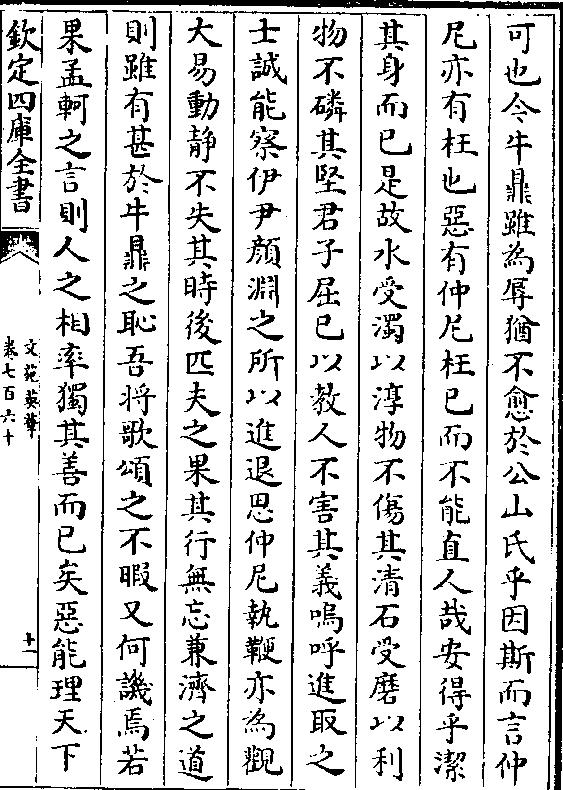 可也今牛鼎雖為辱猶不愈於公山氏乎因斯而言仲
尼亦有枉也惡有仲尼枉已而不能直人哉安得乎潔
其身而已是故水受濁以淳物不傷其清石受磨以利
物不磷其堅君子屈已以教人不害其義嗚呼進取之
士誠能察伊尹顔淵之所以進退思仲尼執鞭亦為觀
大易動静不失其時後匹夫之果其行無忘兼濟之道
則雖有甚於牛鼎之恥吾将歌頌之不暇又何譏焉若
果孟軻之言則人之相率獨其善而已矣惡能理天下
欽定四庫全書
文苑英華
卷七百六十
十一